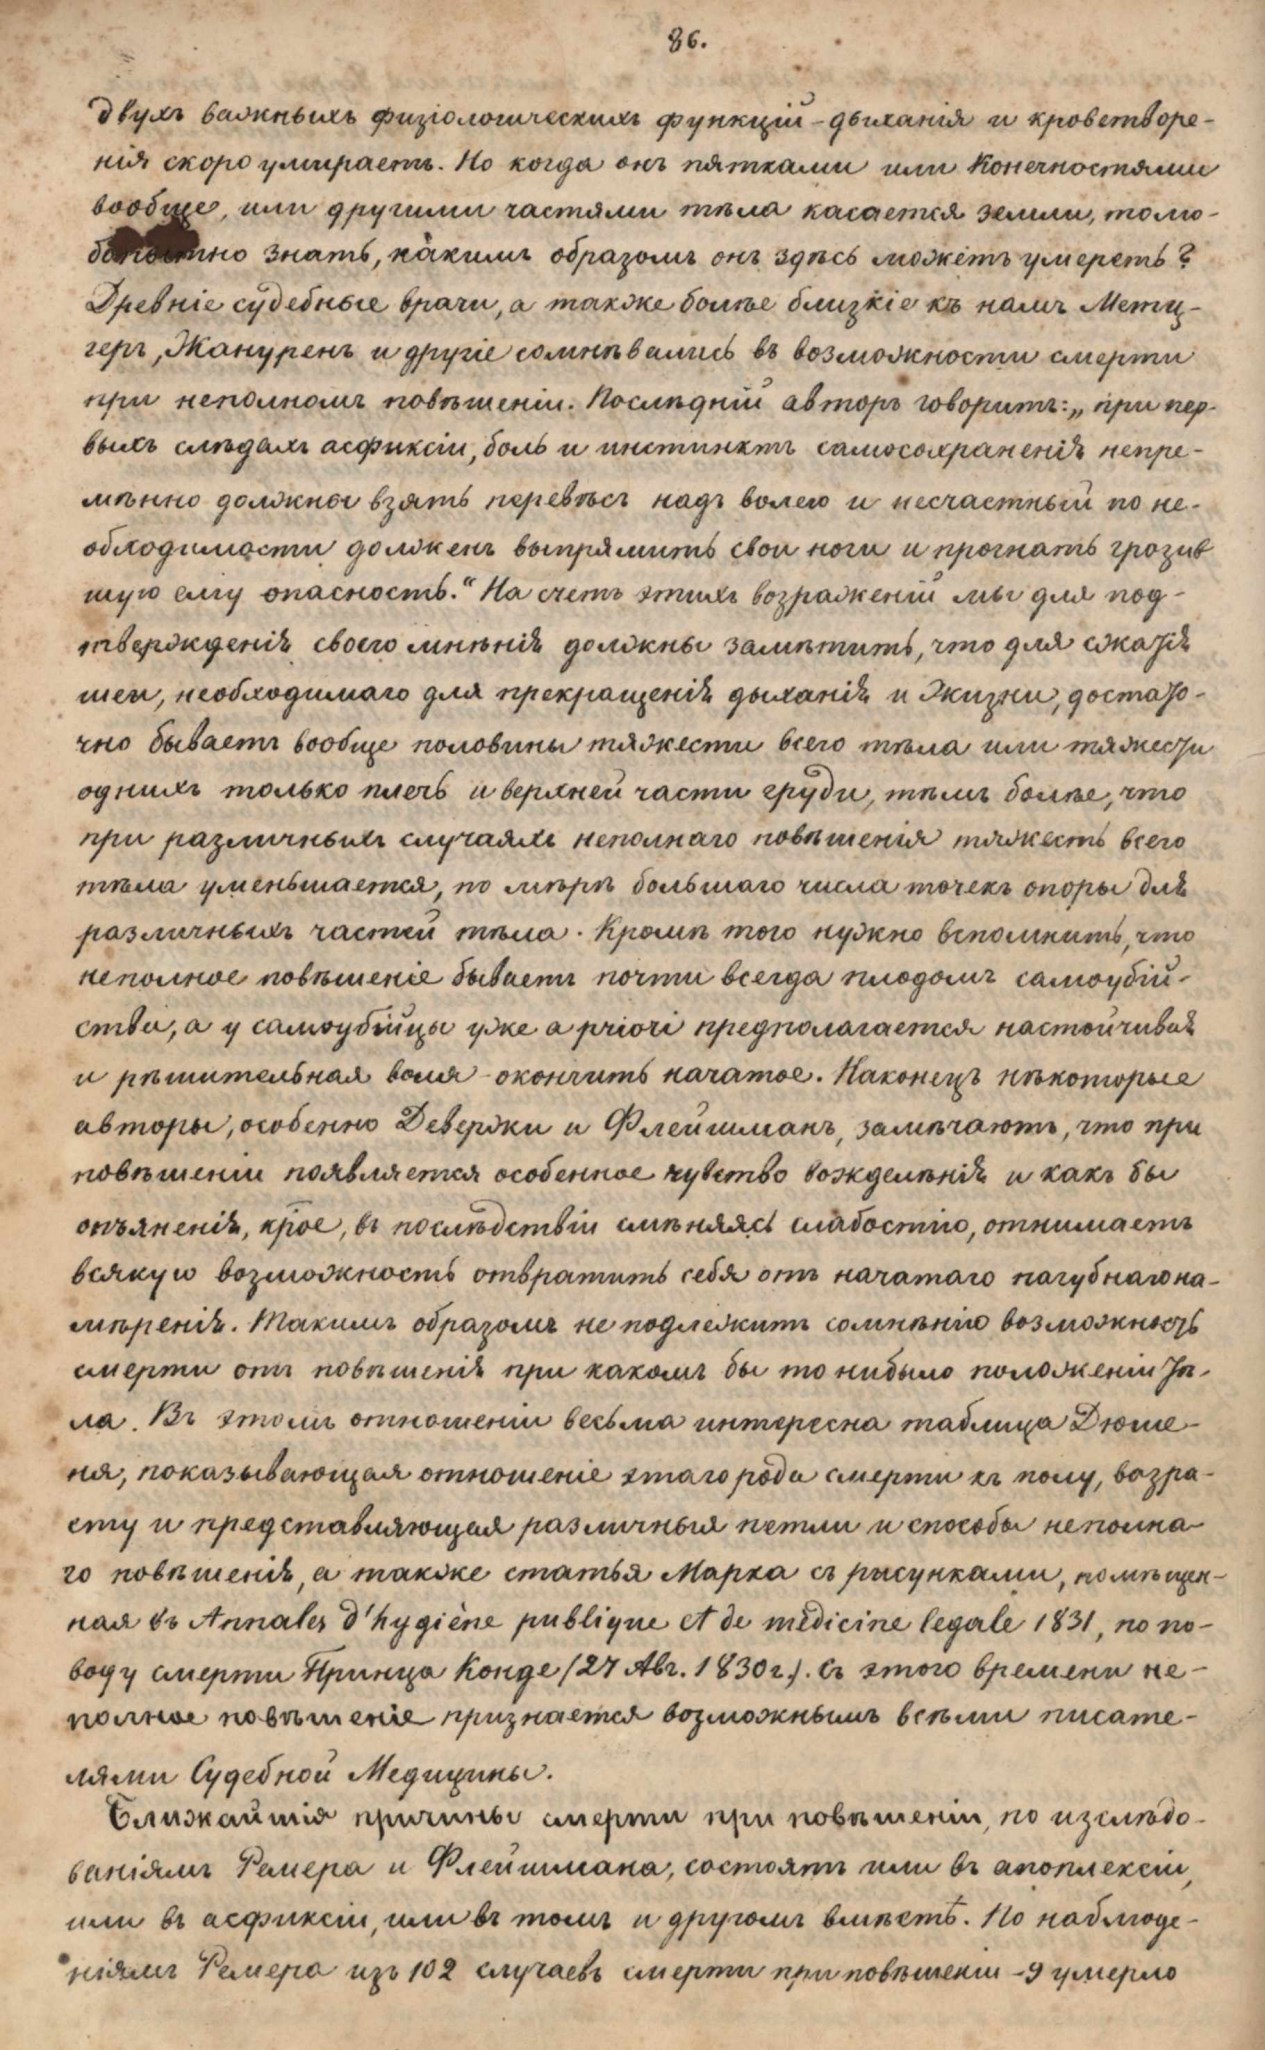 86.
двухъ важныхъ физіологическихъ функцій - дыханія и кроветворе-
нія скоро умираетъ. Но когда онъ пятками или конечностями
вообще, или другими частями тѣла касается земли, то лю-
бопытно знать, какимъ образомъ онъ здѣсь можетъ умереть?
Древніе судебные врачи, а также болѣе близкіе къ намъ Метц-
геръ, Жануренъ и другіе сомнѣвались въ возможности смерти
при неполномъ повѣшеніи. Послѣдній авторъ говоритъ: „при пер-
выхъ слѣдахъ асфиксіи, боль и инстинктъ самосохраненія непре-
мѣнно должны взять перевѣсъ надъ волею и несчастный по не-
обходимости долженъ выпрямить свои ноги и прогнать грозив
шую ему опасность.“ На счетъ этихъ возраженій мы для под-
твержденія своего мнѣнія должны замѣтить, что для сжатія
шеи, необходимаго для прекращенія дыханія и жизни, достато-
чно бываетъ вообще половины тяжести всего тѣла или тяжести
однихъ только плечъ и верхней части груди, тѣмъ болѣе, что
при различныхъ случаяхъ неполнаго повѣшенія тяжесть всего
тѣла уменьшается, по мѣрѣ большаго числа точекъ опоры для
различныхъ частей тѣла. Кромѣ того нужно вспомнить, что
неполное повѣшеніе бываетъ почти всегда плодомъ самоубій-
ства, а у самоубійцы уже a priori предполагается настойчивая
и рѣшительная воля - окончить начатое. Наконецъ нѣкоторые
авторы, особенно Девержи и Флейшманъ, замѣчаютъ, что при
повѣшеніи появляется особенное чувство вожделѣнія и какъ бы
опъяненія, крое, въ послѣдствіи смѣняясь слабостію, отнимаетъ
всякую возможность отвратить себя отъ начатаго пагубнаго на-
мѣренія. Такимъ образомъ не подлежитъ сомнѣнію возможность
смерти отъ повѣшенія при какомъ бы то нибыло положеніи тѣ-
ла. Въ этомъ отношеніи весьма интересна таблица Дюше-
ня, показывающая отношеніе этаго рода смерти къ полу, возра-
сту и представляющая различныя петли и способы неполна-
го повѣшенія, а также статья Марка съ рисунками, помѣщен-
ная въ Annales d'hygiène publique et de médicine legale 1831, по по-
воду смерти Принца Конде (27 Авг. 1830 г.). Съ этого времени не-
полное повѣшеніе признается возможнымъ всѣми писате-
лями Судебной Медицины.
Ближайшія причины смерти при повѣшеніи, по изслѣдо-
ваніямъ Ремера и Флейшмана, состоятъ или въ апоплексіи,
или въ асфиксіи, или въ томъ и другомъ вмѣстѣ. По наблюде-
ніямъ Ремера изъ 102 случаевъ смерти при повѣшеніи - 9 умерло